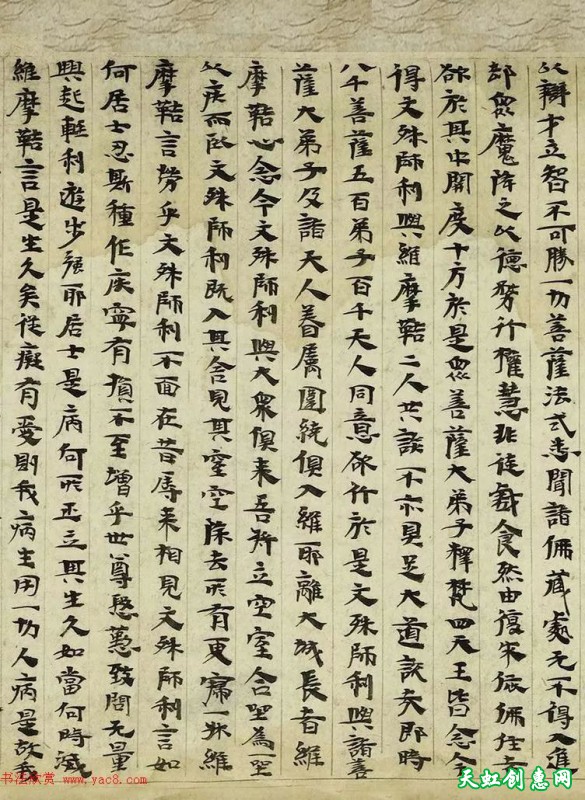 以辯才立智不可勝一切菩薩法式悉聞諸佛藏處无不得入進
却眾魔降之以德務行權慧非徒戲食然由復求依佛住者
欲於其中開度十方於是眾菩薩大弟子釋梵四天王皆念今
得文殊師利與維摩鞊二人共談不亦具足大道說哉即時
八千菩薩五百弟子百千天人同意欲行於是文殊師利與諸菩
薩大弟子及諸天人眷屬圍繞俱入維耶離大城長者維
摩鞊心念今文殊師利與大眾俱來吾將立空室合坐為坐
以疾而臥文殊師利既入其舍見其室空除去所有更寢一牀維
摩鞊言勞乎文殊師利不面在昔辱來相見文殊師利言如
何居士忍斯種作疾寧有損不至增乎世尊慇懃致問无量
興起輕利遊步強耶居士是病何所正立其生久如當何時滅
維摩鞊言是生久矣從癡有愛則我病生用一切人病是故我
书法欣赏 www.yac8.com
天虹创惠网